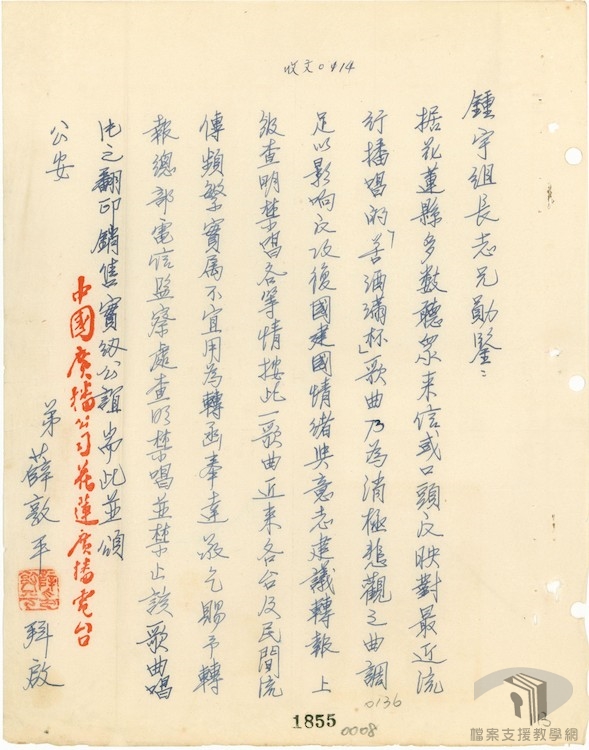 收文0414
鍾宇組長志兄勛鑒：
据花蓮縣多数聽眾来信或口頭反映對最近流
行播唱的「苦酒滿杯」歌曲乃為消極悲觀之曲調
足以影响反攻復國建國情緒與意志建議轉報上
級查明禁唱各等情按此一歌曲近来各台及民間流
傳頻繁實属不宜用為轉函奉達敬乞賜予轉
報總部電信監察處查明禁唱並禁止該歌曲唱
片之翻印銷售實紉公誼耑此並頌
公安
弟薛敦平 拜啟
中國廣播公司花蓮廣播電台
1855
0136
0008
檔案支援教學網